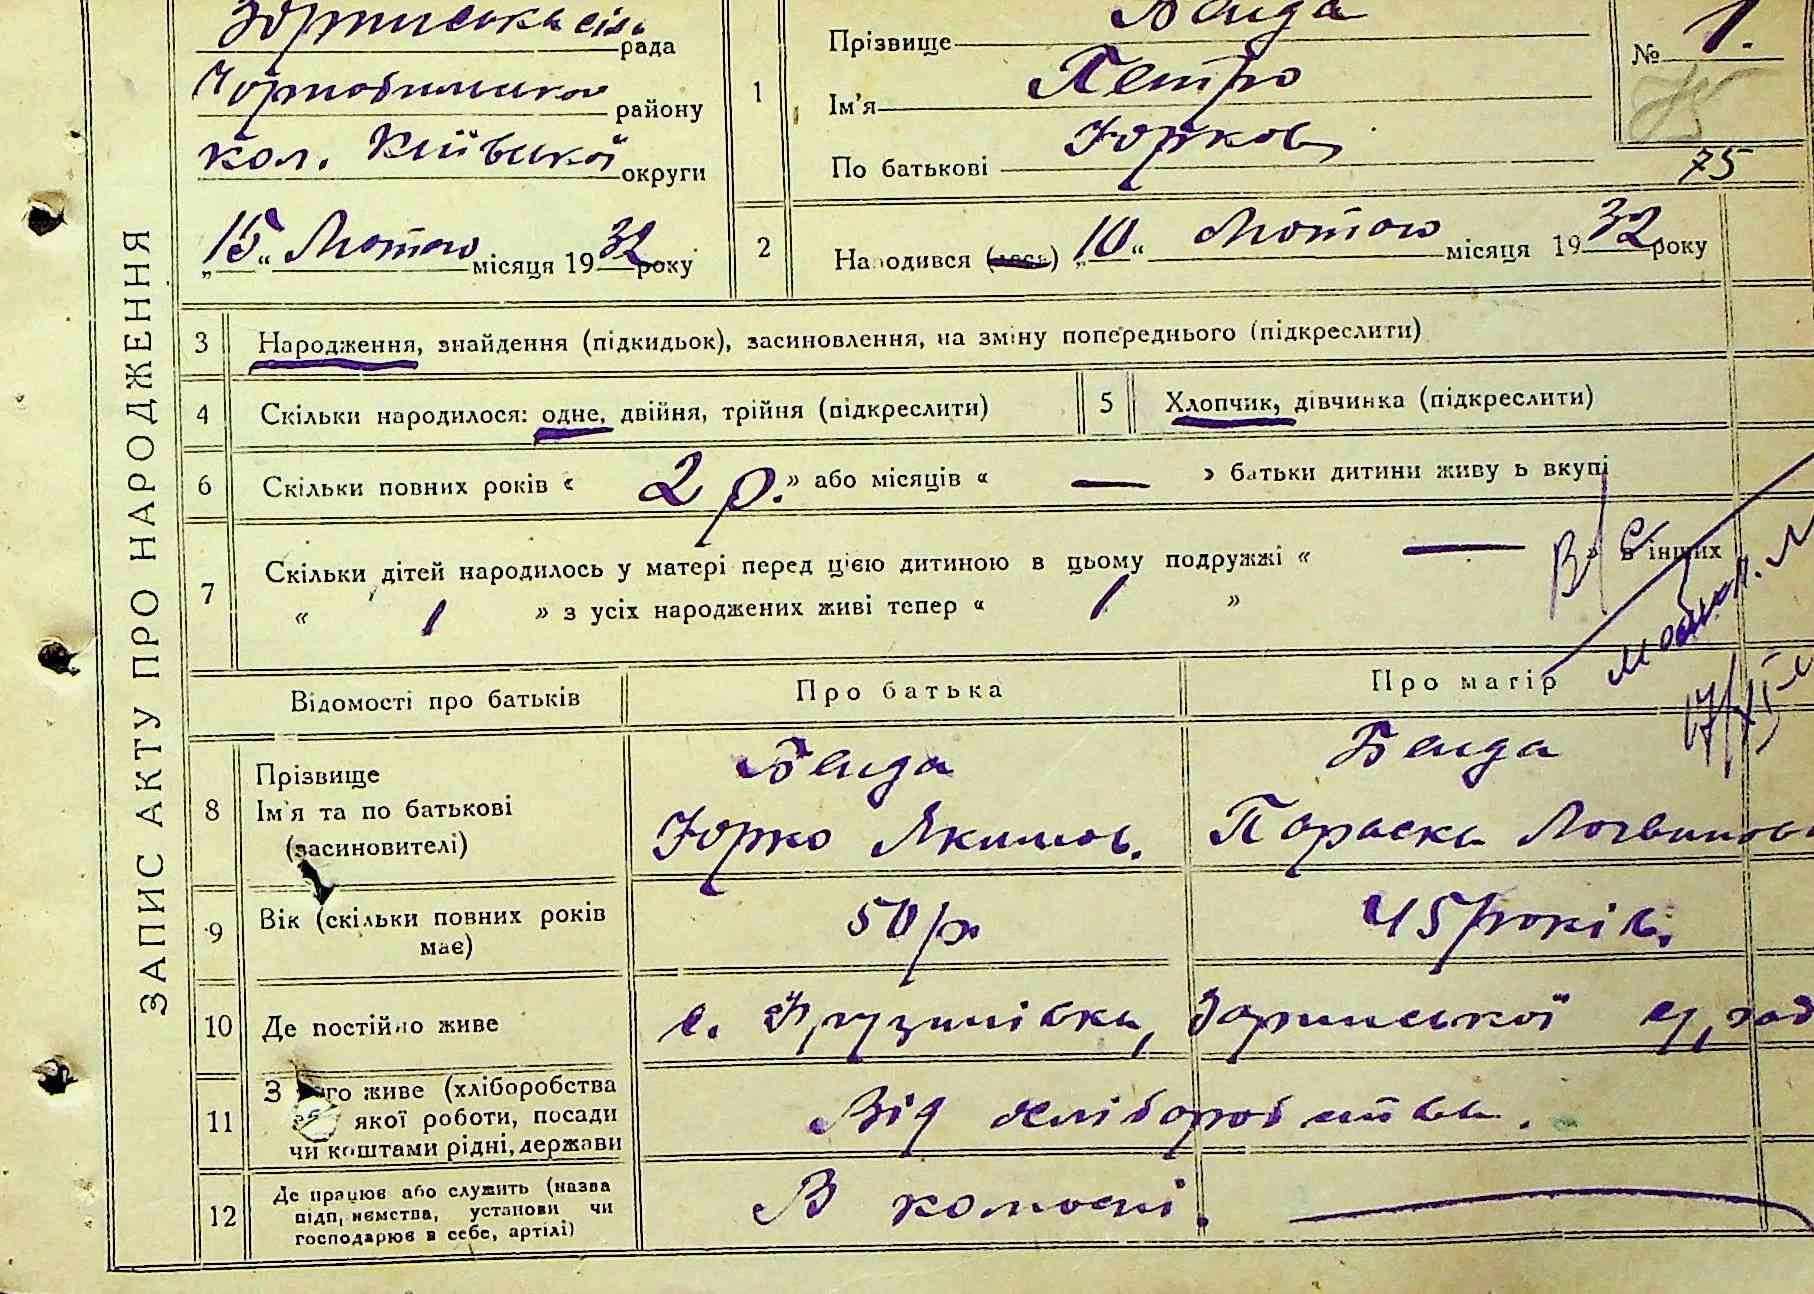 рада
Чорнобильсько району
кол. Київської округи
„15“ Лютого місяця 1932 року
1
Прізвище Бенда
Ім'я Петро
По батькові Юрков
№ 1.
75
2
Народився (лася) „10“ Лютого місяця 1932 року
ЗАПИС АКТУ ПРО НАРОДЖЕННЯ
3 Народження, знайдення (підкидьок), засиновлення, на зміну попереднього (підкреслити)
4 Скільки народилося: одне, двійня, трійня (підкреслити)
5 Хлопчик, дівчинка (підкреслити)
6 Скільки повних років « 2 р. » або місяців « — » батьки дитини живуть вкупі
7 Скільки дітей народилось у матері перед цією дитиною в цьому подружжі « — » в інших
« 1 » з усіх народжених живі тепер « 1 »
В/с
17/XI
Відомості про батьків
Про батька
Про матір
8 Прізвище
Ім'я та по батькові
(засиновителі)
Бенда
Юрко Якимов.
Бенда
Параска Логвинов
9 Вік (скільки повних років має)
50 р
45 років.
10 Де постійно живе
с. Грузинівка, Зоринської
11 З чого живе (хліборобства якої роботи, посади чи коштами рідні, держави
Від хліборобства.
12 Де працює або служить (назва підприємства, установи чи господарює в себе, артілі)
В колгоспі.